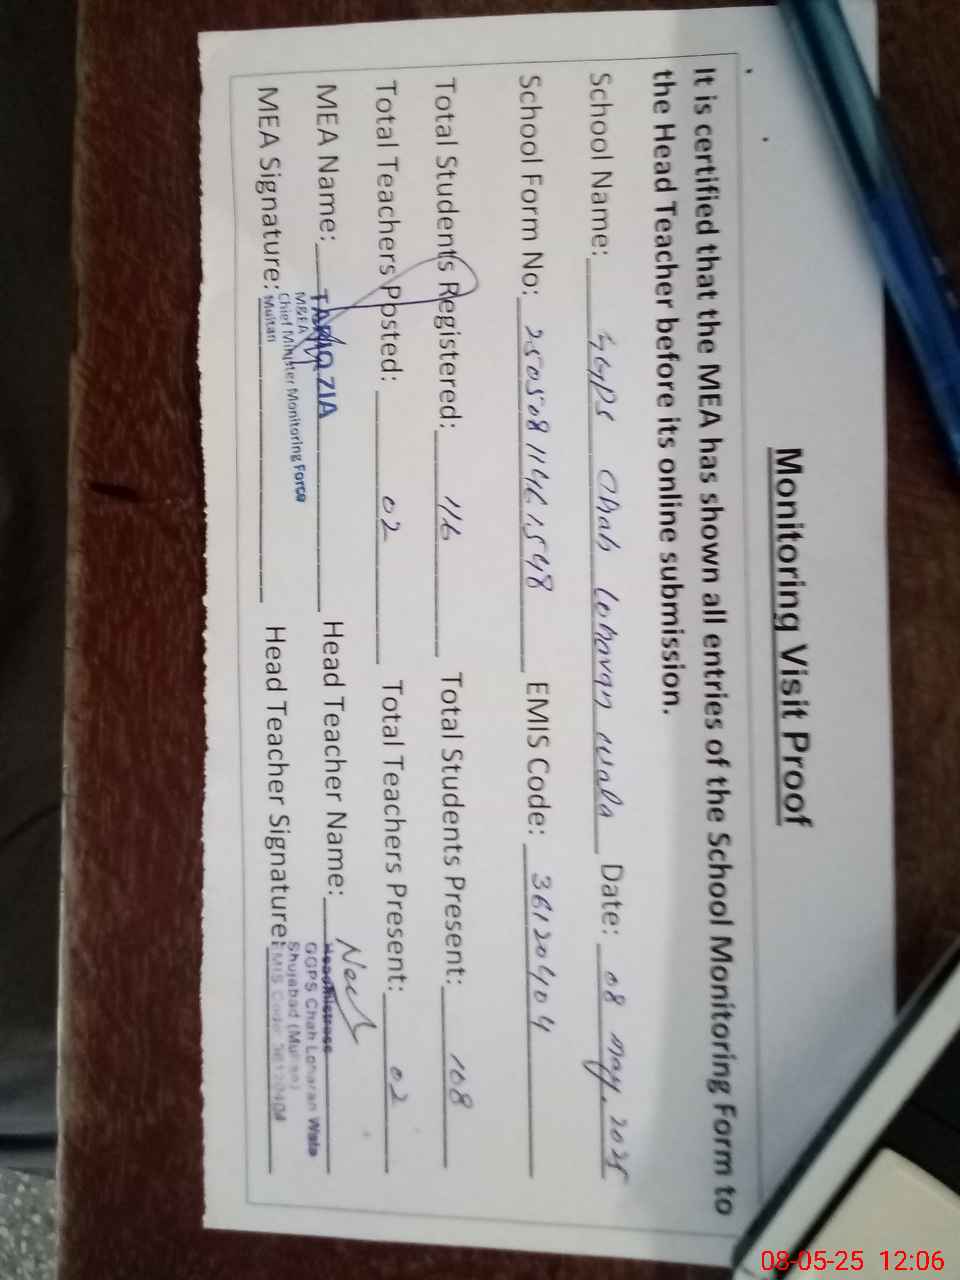 Monitoring Visit Proof
It is certified that the MEA has shown all entries of the School Monitoring Form to
the Head Teacher before its online submission.
School Name: GGPS Chah Loharan wala Date: 08 May, 2025
School Form No: 25050811461548 EMIS Code: 36120404
Total Students Registered: 116 Total Students Present: 108
Total Teachers Posted: 02 Total Teachers Present: 02
MEA Name: TARIQ ZIA Head Teacher Name:
M&EA
Chief Minister Monitoring Force
Multan
Headmistress
GGPS Chah Loharan Wala
Shujabad (Multan)
EMIS Code: 36120404
MEA Signature: Head Teacher Signature:
08-05-25 12:06